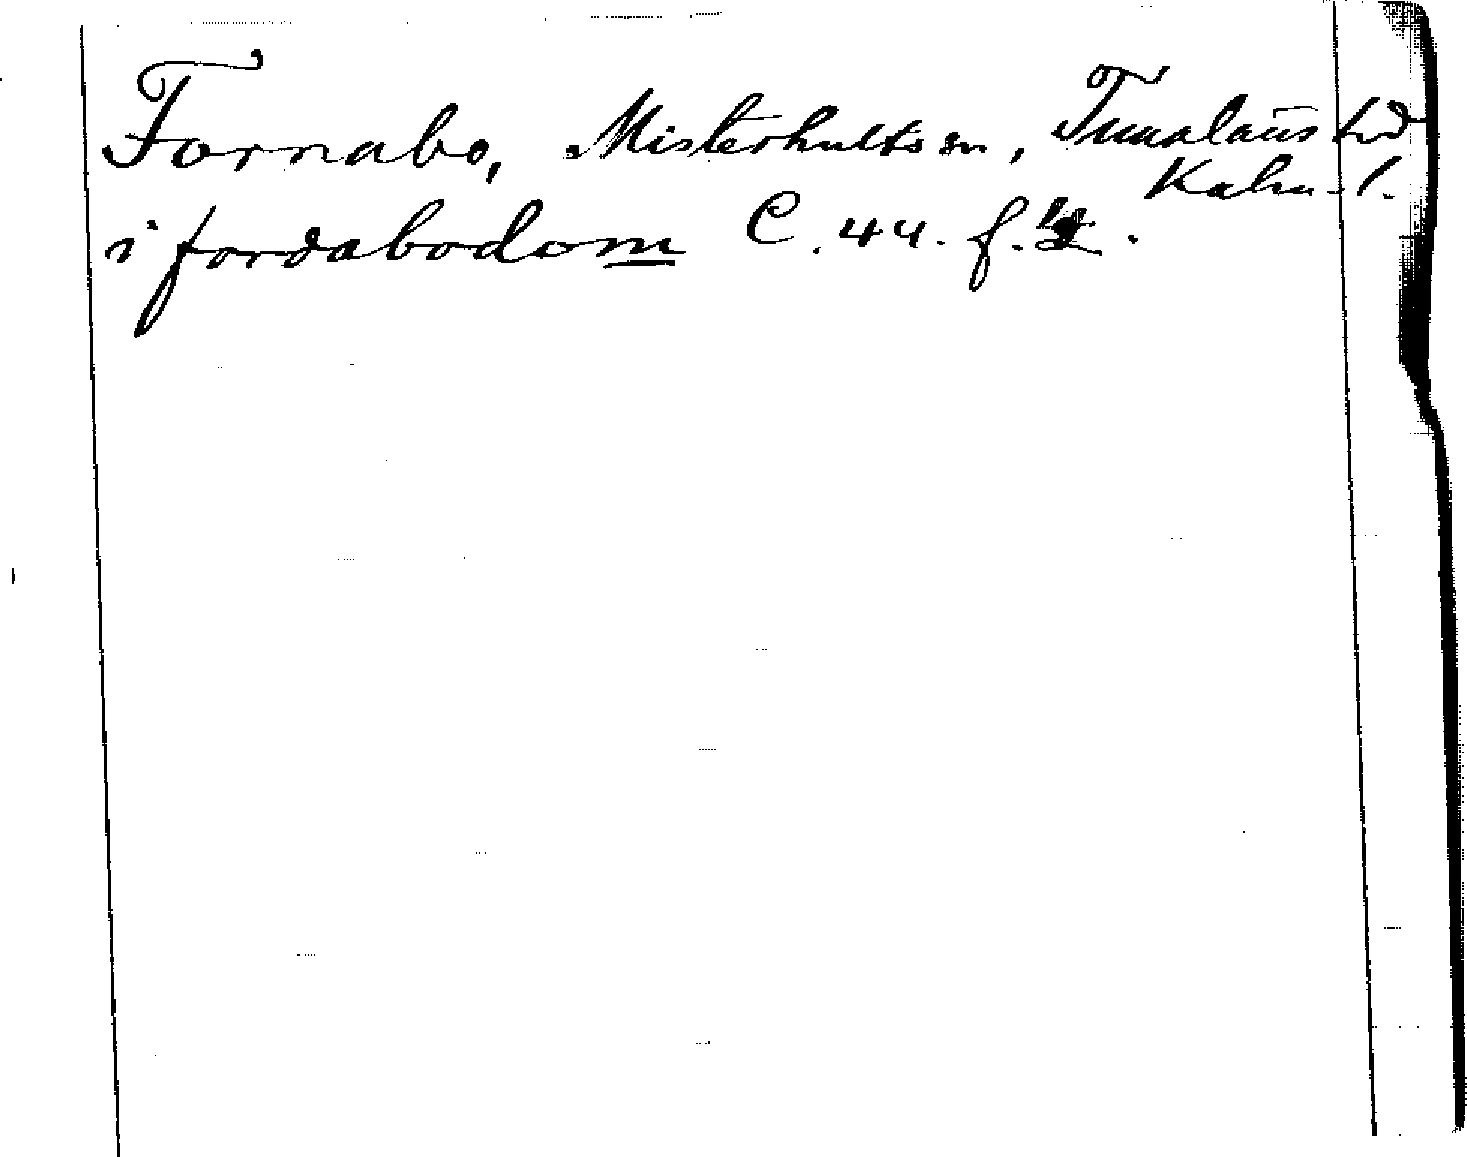 Fornabo, Misterhults sn, Tunaläns hd
Kalm. l.
i fordabodom C. 44. f.